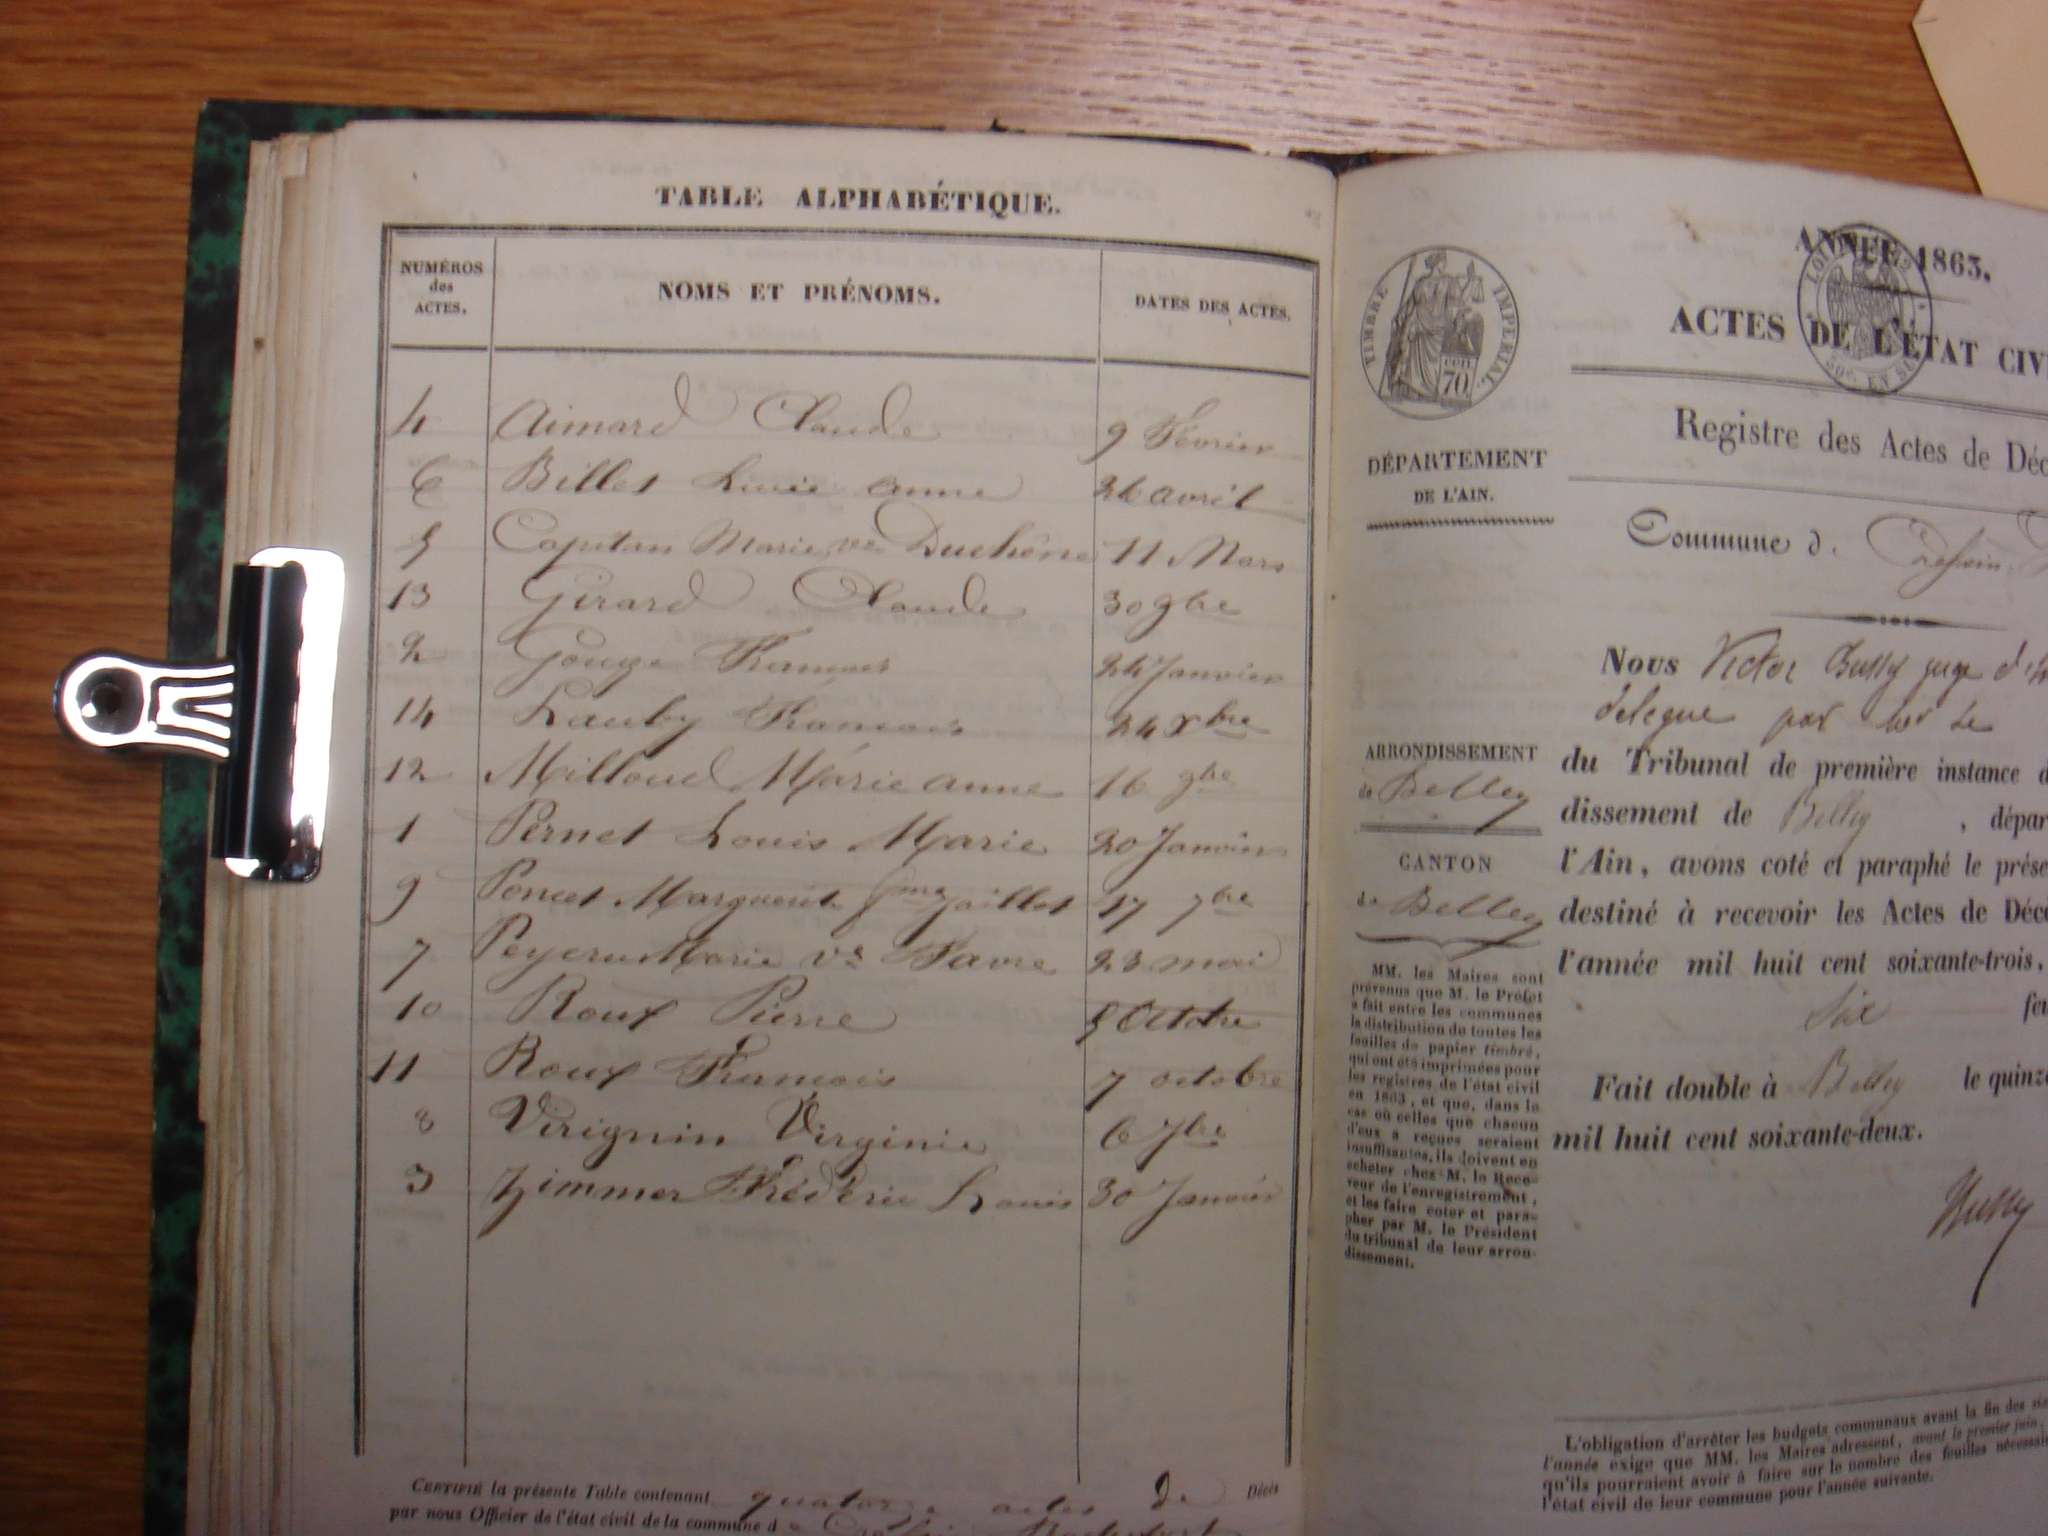 TABLE ALPHABÉTIQUE.
NUMÉROS des ACTES.
NOMS ET PRÉNOMS.
DATES DES ACTES.
4 Aimard Claude 9 Février
6 Billet anne 26 avril
5 Capitan Marie ve Duchêne 11 Mars
13 Girard Claude 30 9bre
2 Gouge François 24 Janvier
14 Lauby François 24 Xbre
12 Milloud Marie anne 16 9bre
1 Pernet Louis Marie 20 Janvier
9 Poncet Marguerite fme Jaillet 17 7bre
7 Marie ve Favre 23 mai
10 Roux Pierre 5 Octobre
11 Roux François 7 octobre
8 Virignin Virginie 6 7bre
3 Zimmer Frédéric Louis 30 Janvier
CERTIFIÉ la présente Table contenant quatorze actes de Décès
par nous Officier de l'état civil de la commune d
ANNÉE 1863.
TIMBRE IMPÉRIAL.
CENT 70
ACTES DE L'ÉTAT CIV
Registre des Actes de Déc
DÉPARTEMENT
DE L'AIN.
Commune d.
Nous Victor juge
délégué par
ARRONDISSEMENT
de Belley
du Tribunal de première instance d
dissement de Belley , dépar
CANTON
de Belley
l'Ain, avons coté et paraphé le prése
destiné à recevoir les Actes de Décè
l'année mil huit cent soixante-trois,
Six feu
Fait double à Belley le quinz
mil huit cent soixante-deux.
MM. les Maires sont
prévenus que M. le Préfet
a fait entre les communes
la distribution de toutes les
feuilles de papier timbré,
qui ont été imprimées pour
les registres de l'état civil
en 1863, et que, dans le
cas où celles que chacun
d'eux a reçues seraient
insuffisantes, ils doivent en
acheter chez M. le Rece-
veur de l'enregistrement,
et les faire coter et para-
pher par M. le Président
du tribunal de leur arron-
dissement.
L'obligation d'arrêter les budgets communaux avant la fin des
l'année exige que MM. les Maires adressent, avant le premier juin,
qu'ils pourraient avoir à faire sur le nombre des feuilles nécessai
l'état civil de leur commune pour l'année suivante.